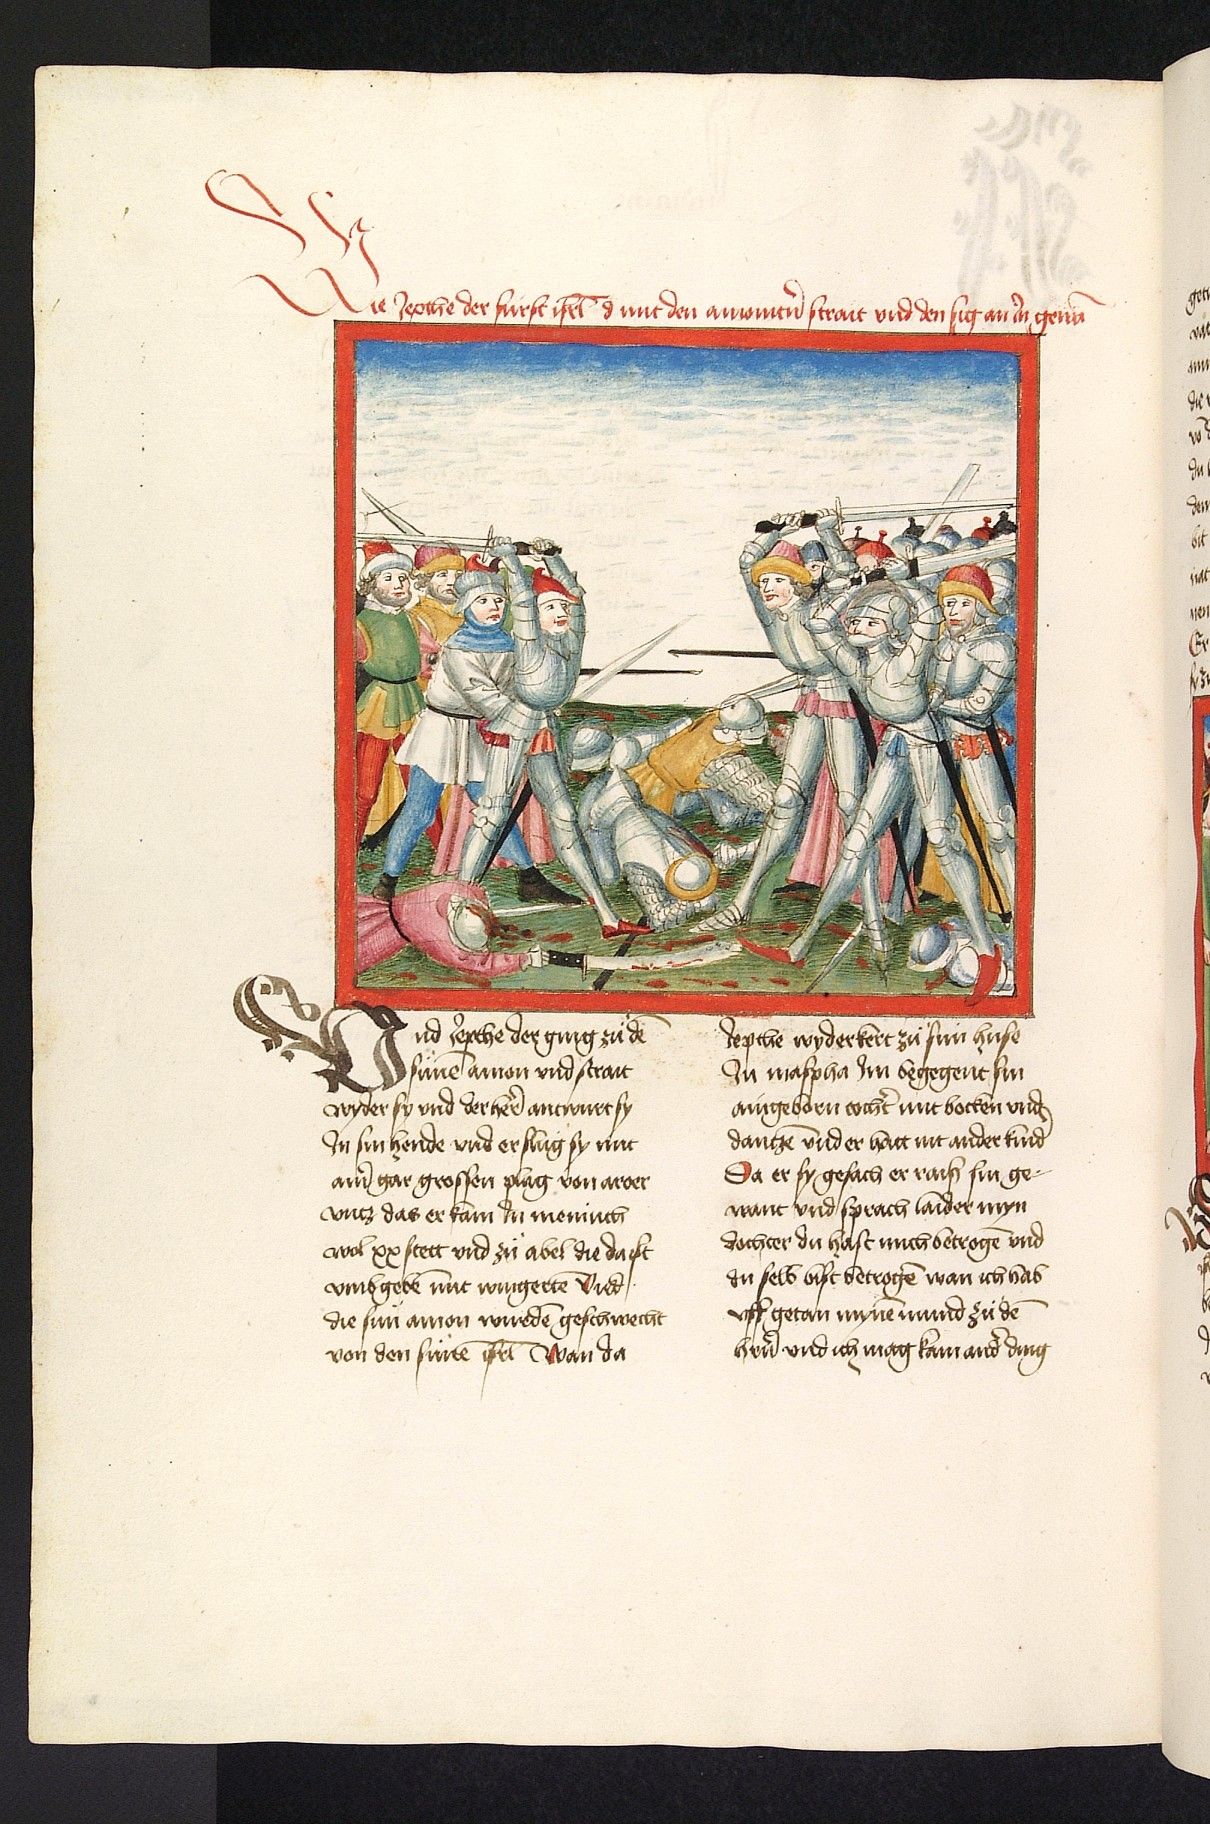 Wie Jepthe der fürst isr̄l d mit den amonitn̄ strait vnd den sig an In genā
Und Jepthe der ging zů dē
sünē amon vnd strait
wyder sy vnd der her̄ antwurt sy
In sin hende vnd er slůg sy mit
ainr̄ gar grossen plag von aroer
vntz das er kam In meninth
wol xx stett vnd zů abel die da ist
vmbgebē mit wingertē Vnd
die sün amon wurdē geschwecht
von den sünē isr̄l Wan da
Jepthe wyderkert zů sim huse
In maspha Im begegent sin
aingeborn tocht̄ mit bocken vnd
dantzē vnd er hatt nit ander kind
Da er sy gesach er raiß sin ge-
want vnd sprach laider myn
dochter du hast mich betrogē vnd
du selb bist betrogē wan ich hab
vff getan mynē mund zů dē
hern̄ vnd ich mag kain and̄ ding